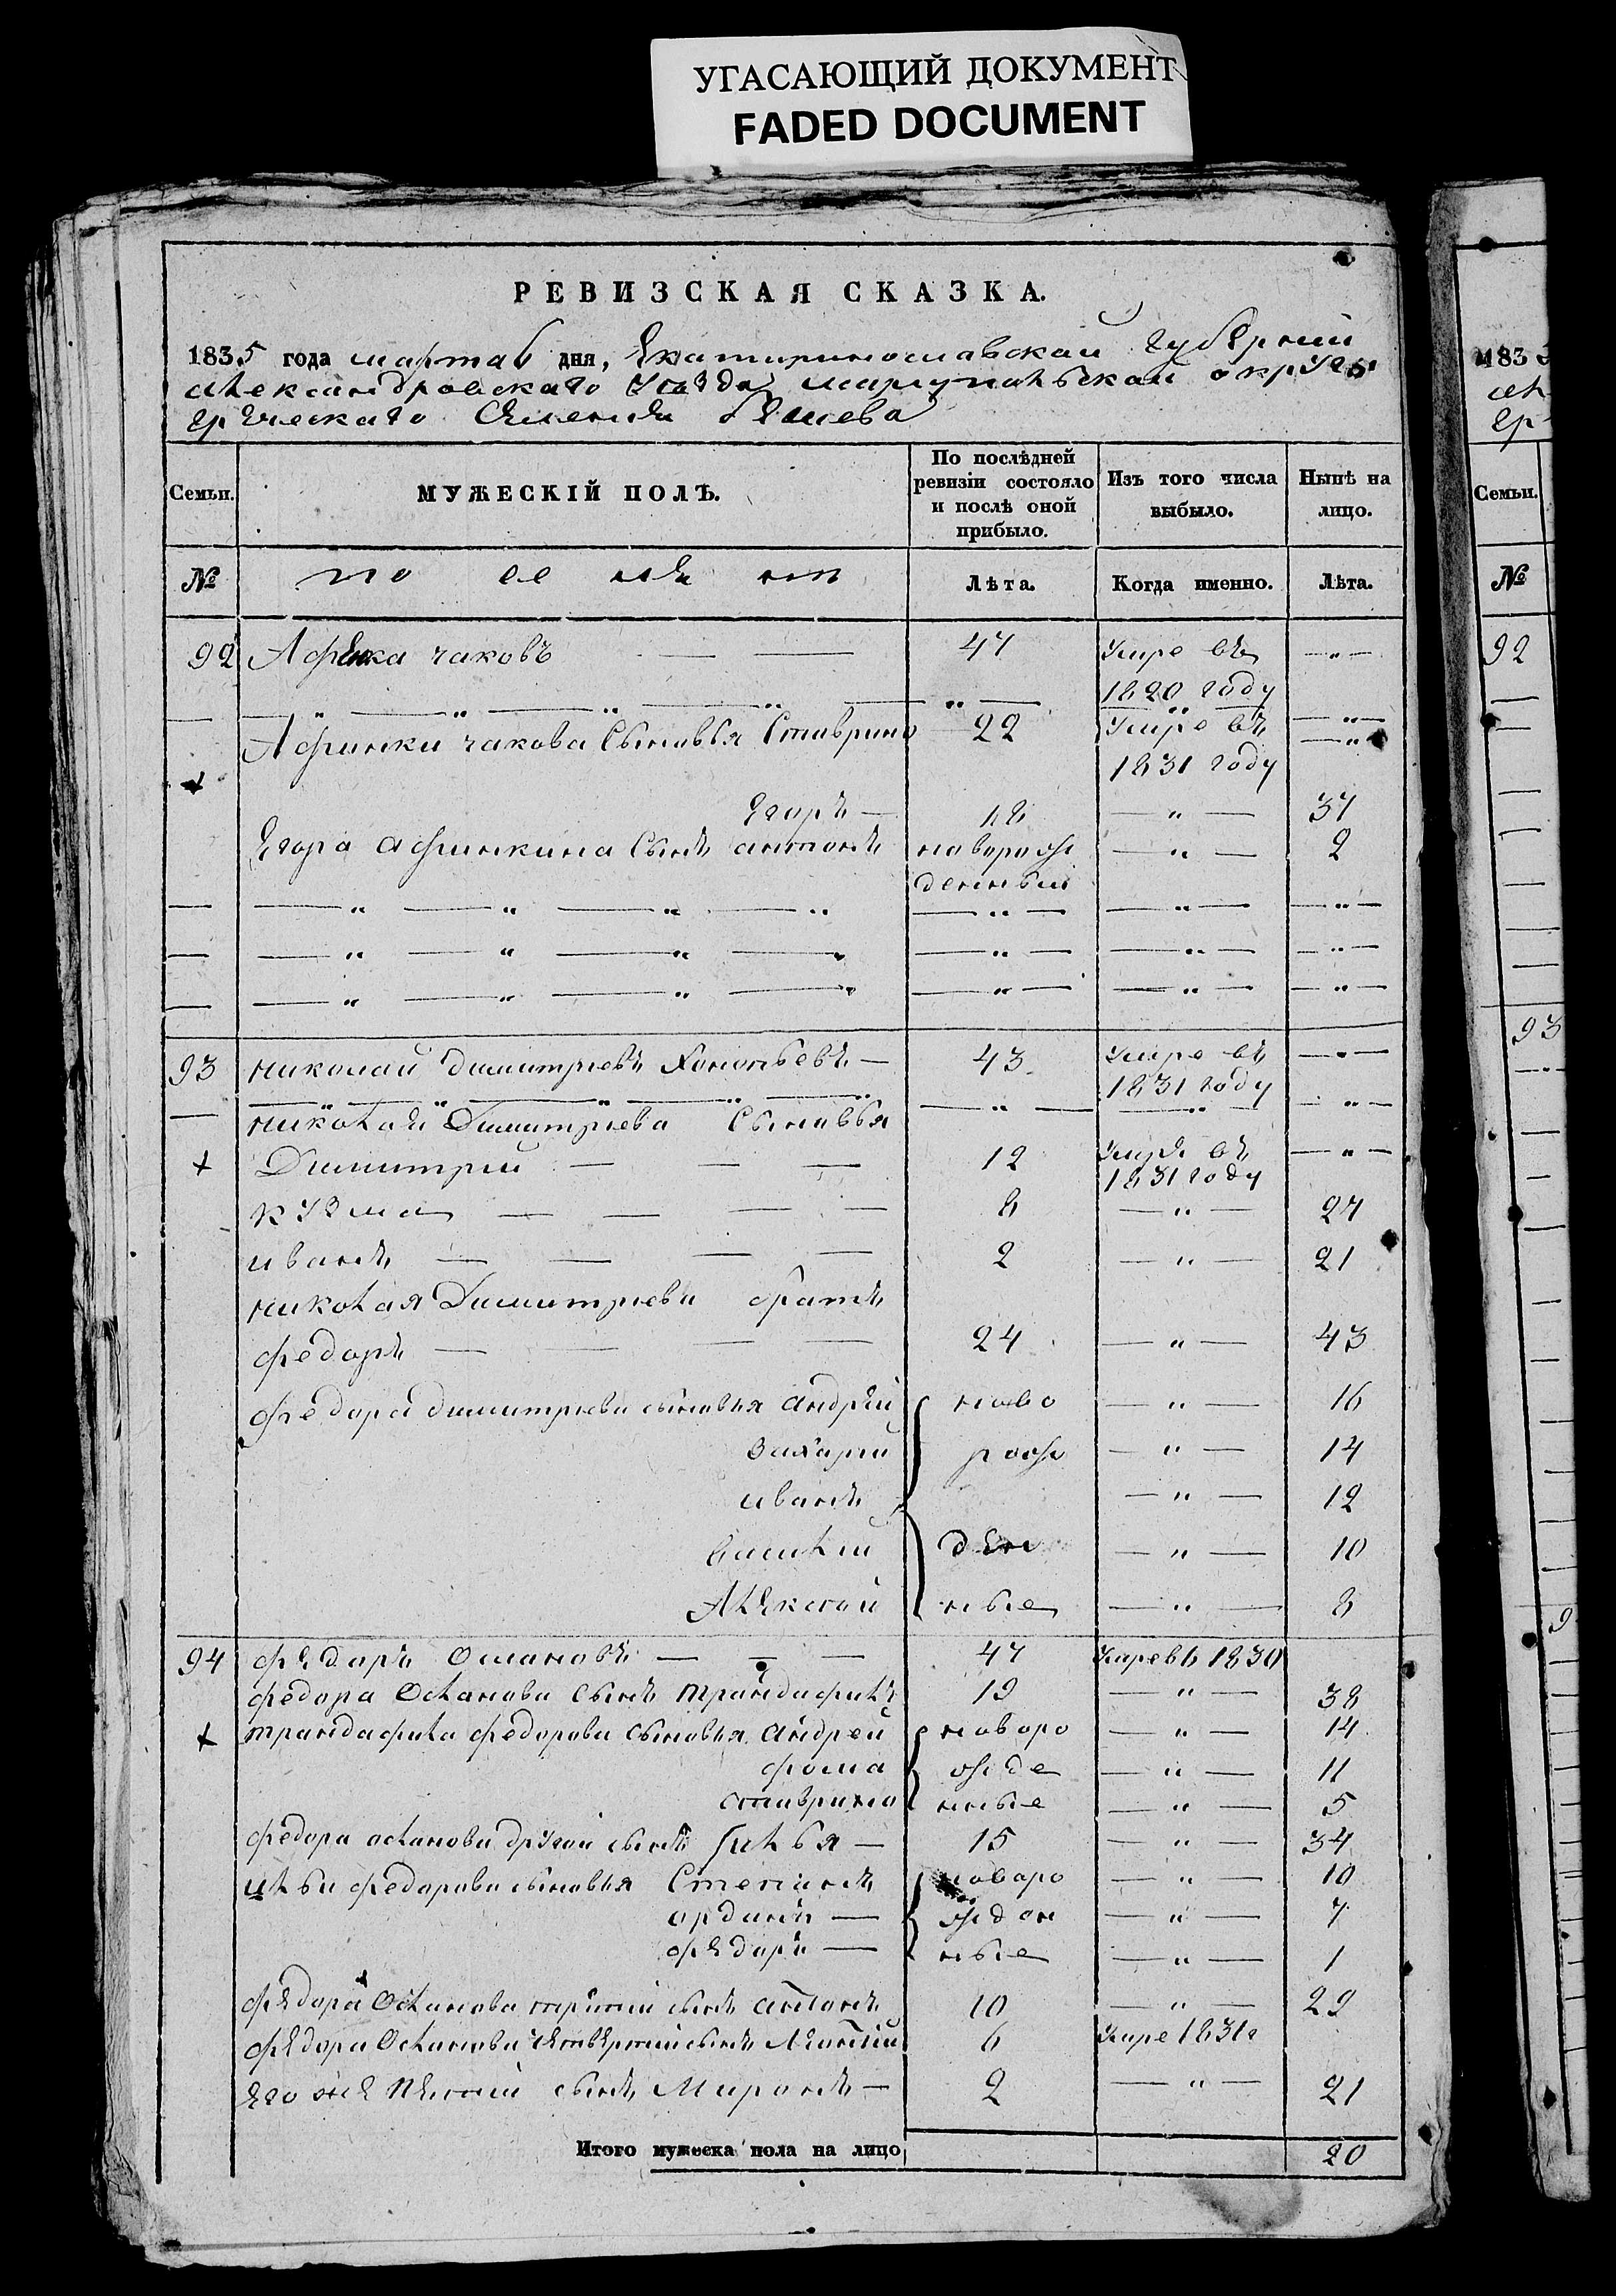 УГАСАЮЩИЙ ДОКУМЕНТ
FADED DOCUMENT
РЕВИЗСКАЯ СКАЗКА.
1835 года марта 6 дня, Екатиринославской губернии
Александровскаго уезда мариупольской округи
греческаго Селения
Семьи.
МУЖЕСКІЙ ПОЛЪ.
По послѣдней ревизіи состояло и послѣ оной прибыло.
Изъ того числа выбыло.
Нынѣ на лицо.
№
Лѣта.
Когда именно.
Лѣта.
92 чаковъ — — 47 Умре въ — " —
1820 году
Афинки чакова Сыновья Ставрино 22 Умре въ — " —
1831 году
Егоръ — 18 — " — 37
Егора Афинкина Сынъ антонъ новорож — " — 2
денный
93 николай димитриевъ Хононьевъ — 43 Умре въ — " —
1831 году
николая Димитриева Сыновья
Димитрий — — — 12 Умре въ — " —
1831 году
кузма — — — — 8 — " — 27
иванъ — — — — 2 — " — 21
николая Димитриева братъ
федоръ — — — — 24 — " — 43
федора димитриева сыновья андрей ново — " — 16
захарий рож — " — 14
иванъ — " — 12
василий ден — " — 10
Алексей ные — " — 8
94 федоръ Ослановъ — — — 47 Умре въ 1830
федора Осланова сынъ трандафилъ 19 — " — 38
трандафила федорова сыновья андрей новоро — " — 14
фома жде — " — 11
ставрино нные — " — 5
федора осланова другой сынъ илья — 15 — " — 34
ильи федорова сыновья Степанъ новоро — " — 10
орданъ — жден — " — 7
федоръ — ные — " — 1
федора Осланова третий сынъ антонъ 10 — " — 29
федора Осланова четвертый сынъ 6 Умре 1831г
Его же пятый сынъ Миронъ — 2 — " — 21
Итого мужеска пола на лицо 20
183
Семьи.
№
92
93
9